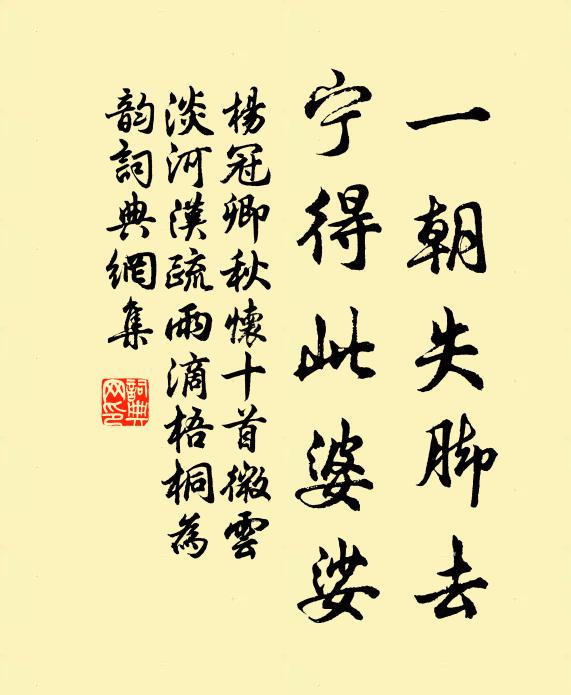 一朝失脚去
宁得此婆娑
楊冠卿秋懷十首微雲
淡河漢疏雨滴梧桐為
韵詞典網集
詞典
网印